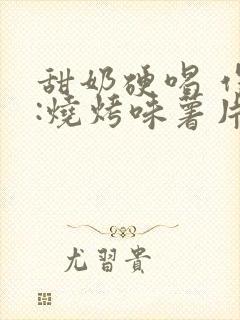 甜奶硬唱
:燒烤味薯片
尤習貴